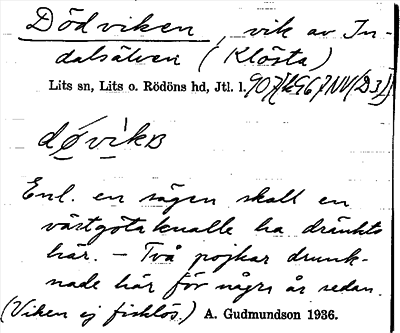 Dödviken, vik av In-
dalsälven (Klösta)
Lits sn, Lits o. Rödöns hd, Jtl. l.
Enl. en sägen skall en
västgötaknalle ha dränkts
här. – Två pojkar drunk-
nade här för några år sedan.
(Viken ej fisklös.) A. Gudmundson 1936.